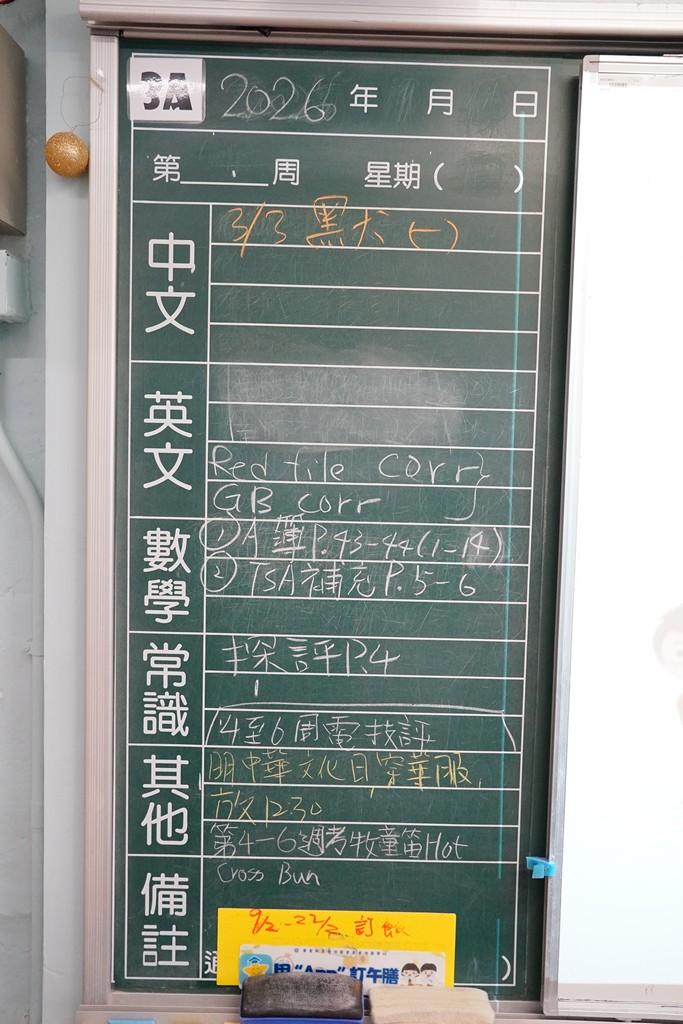 3A 2026 年 月 日
第 周 星期( )
中文
3/3 黑犬 (一)
英文
Red file corr }
GB corr
數學
① A簿 P.43-44(1-14)
② TSA補充 P.5-6
常識
探評P.4
4至6周電技評
其他
明中華文化日,穿華服,
放12:30
第4-6週考牧童笛Hot
備註
Cross Bun
9/2-22/2 訂飯
用“App”訂午膳